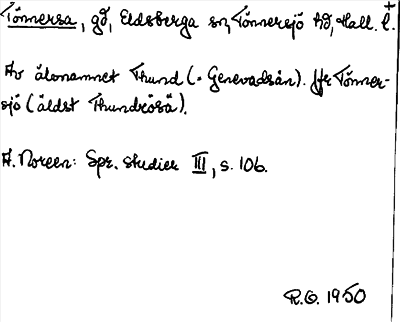 Tönnersa, gd, Eldsberga sn, Tönnersjö hd, Hall. l.
Av ånamnet Thund (= Genevadsån). Jfr Tönner-
sjö (äldst Thundrösä).
A. Noreen: Spr. studier III, s. 106.
R.G. 1950